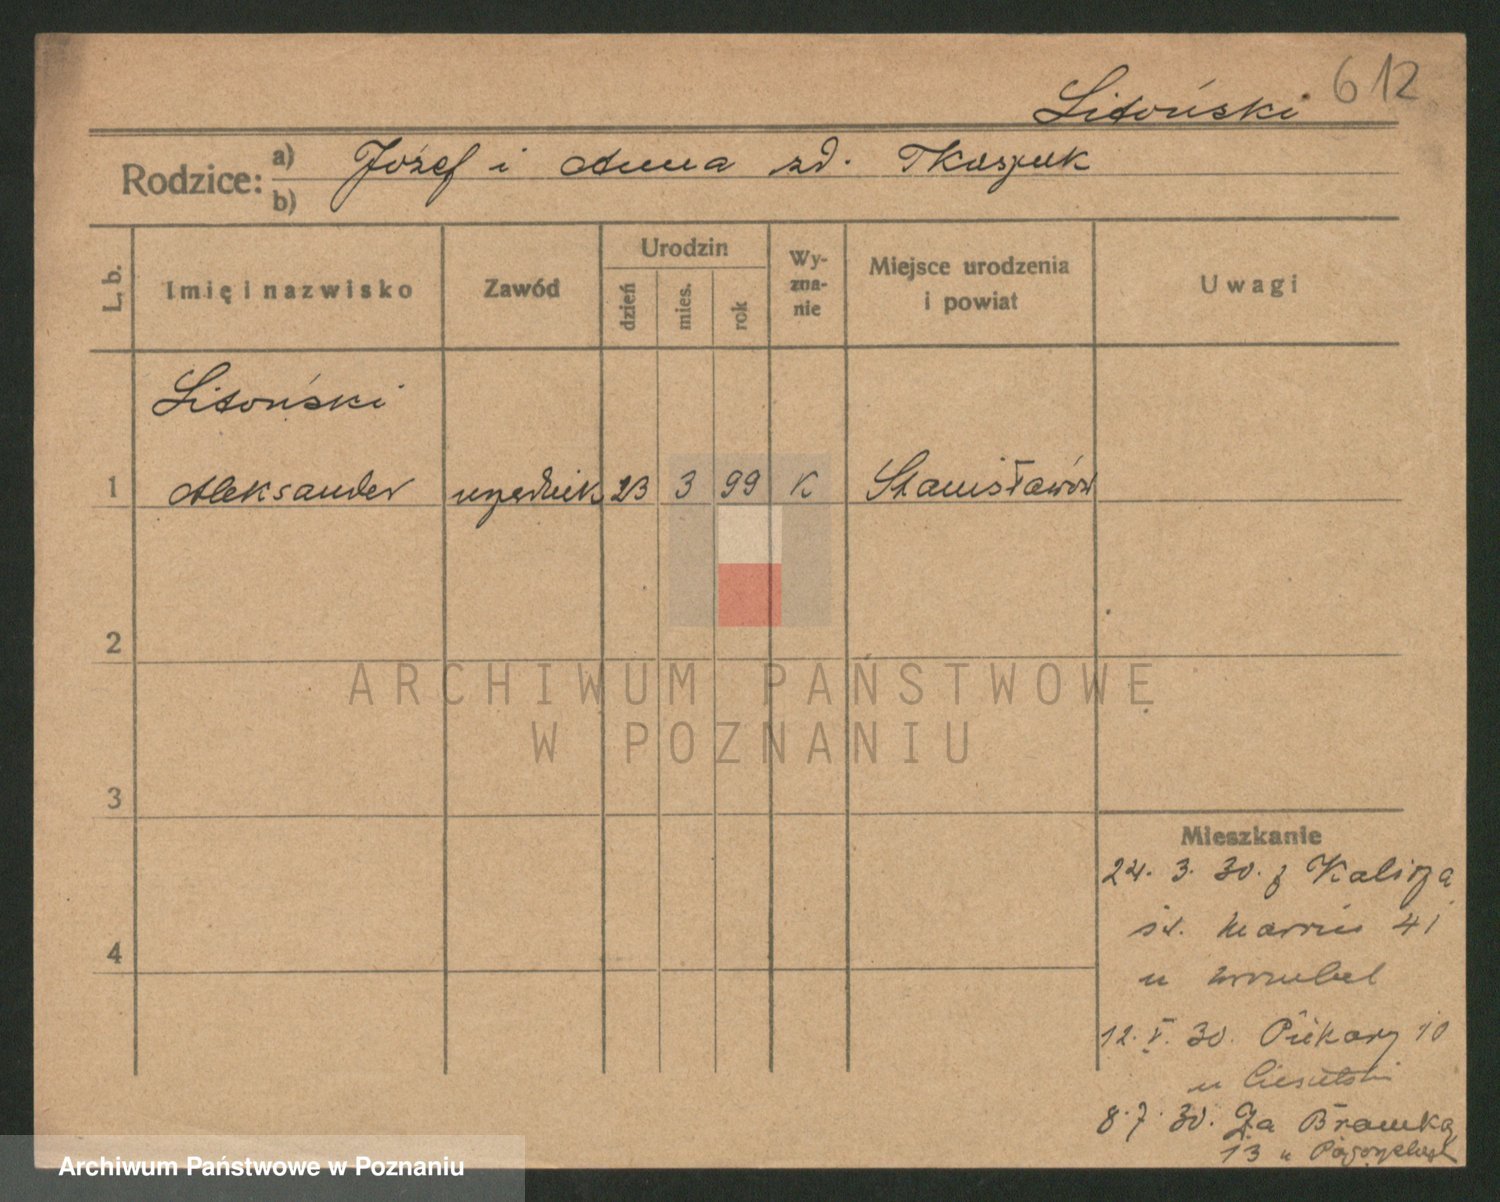 612
Litoński
Rodzice: a) Józef i Anna zd. Tkaszuk
b)
L. b.
Imię i nazwisko
Zawód
Urodzin
dzień
mies.
rok
Wy-
zna-
nie
Miejsce urodzenia
i powiat
Uwagi
Litoński
1 Aleksander urzędnik 23 3 99 K Stanisławów
2
3
4
ARCHIWUM PAŃSTWOWE
W POZNANIU
Mieszkanie
24. 3. 30. z Kalisza
św. Marcin 41
u Wrzubel
12. V. 30. Piekary 10
u
8.7.30. Za Bramką
13 u
Archiwum Państwowe w Poznaniu